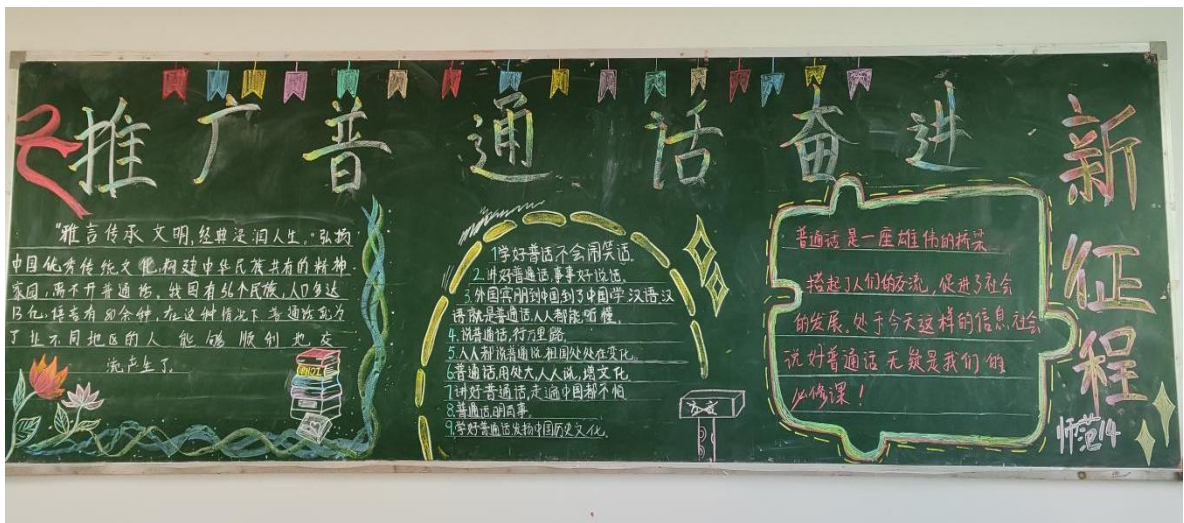 推广普通话奋进新征程
"雅言传承文明,经典浸润人生。"弘扬
中国优秀传统文化,构建中华民族共有的精神
家园,离不开普通话。我国有56个民族,人口多达
13亿,语言有80余种,在这种情况下,普通话就为
了让不同地区的人能够顺利地交
流产生了。
1学好普话不会闹笑话。
2.讲好普通话,事事好说话。
3.外国宾朋到中国到了中国学汉语,汉
语就是普通话人人都能听懂。
4.说普通话,行万里路。
5.人人都说普通话祖国处处在变化。
6.普通话用处大,人人说,增文化。
7讲好普通话,走遍中国都不怕
8.普通话,明百事。
9.学好普通话发扬中国历史文化。
普通话是一座雄伟的桥梁
搭起了人们的交流,促进了社会
的发展。处于今天这样的信息社会
说好普通话无疑是我们的
必修课!
师范14